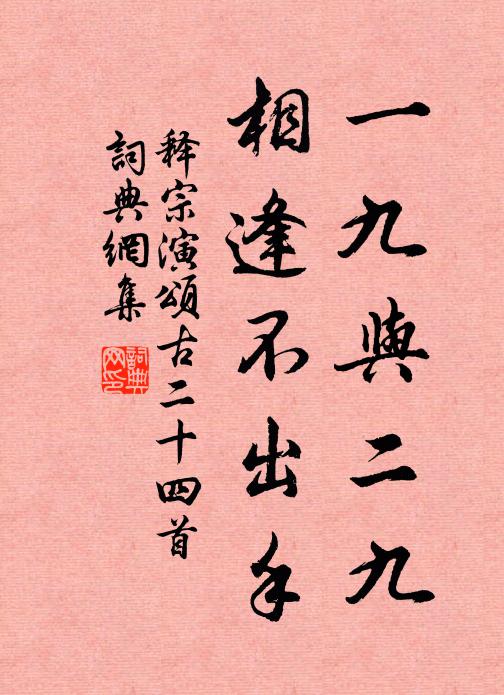 一九與二九
相逢不出手
释宗演頌古二十四首
詞典網集
詞典
网印